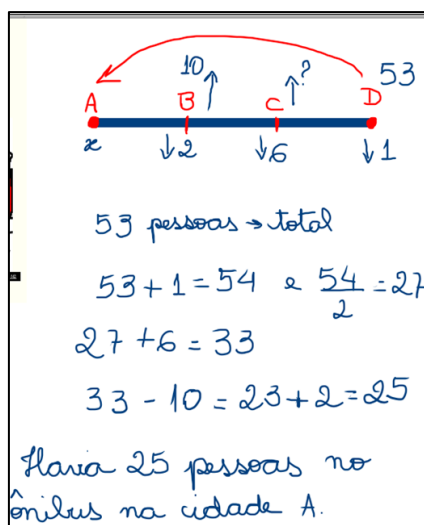 10 ↑ ↑? 53
A B C D
x ↓2 ↓6 ↓1
53 pessoas → total
53 + 1 = 54 e 54/2 = 27
27 + 6 = 33
33 - 10 = 23 + 2 = 25
Havia 25 pessoas no
ônibus na cidade A.